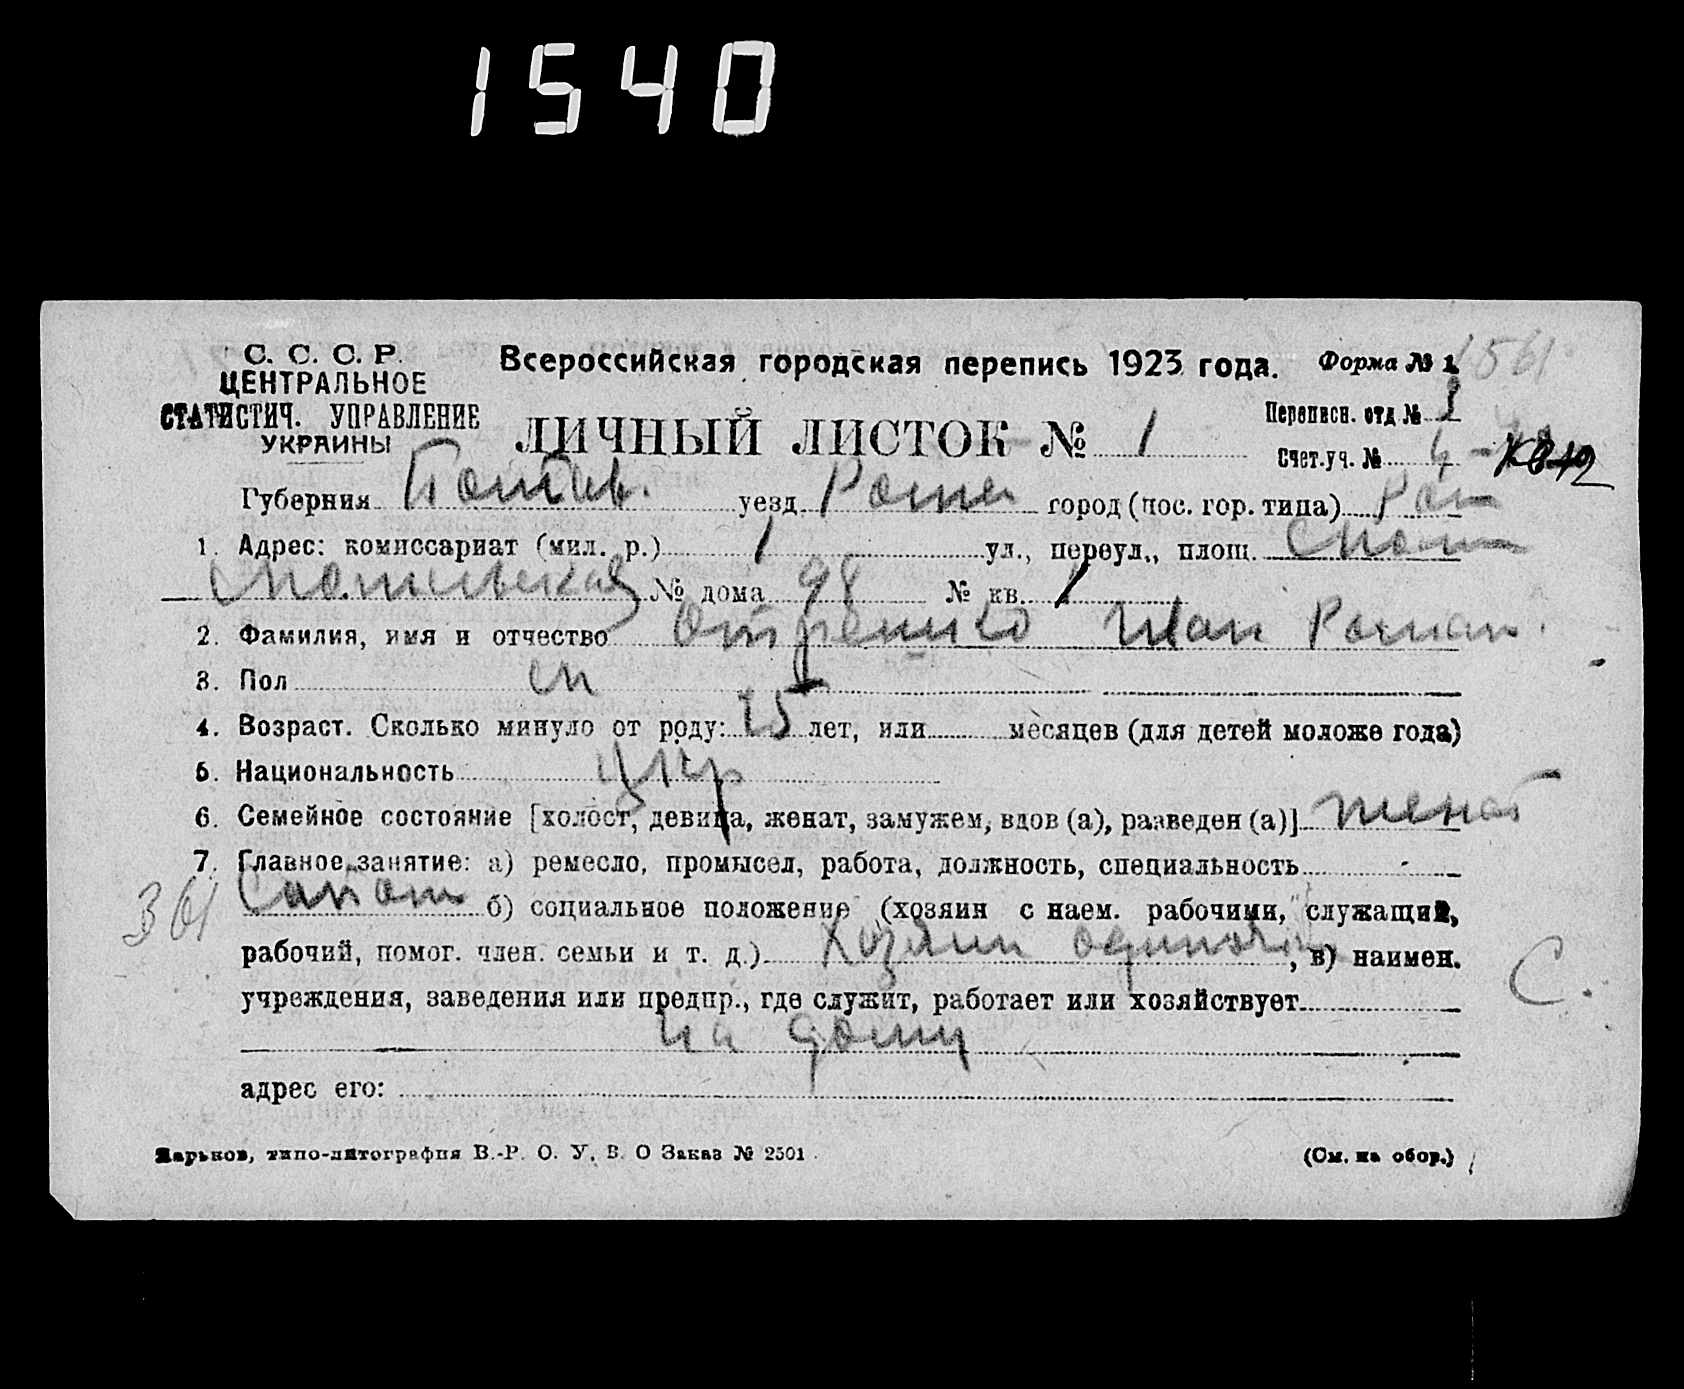 1540
С. С. С. Р.
ЦЕНТРАЛЬНОЕ
СТАТИСТИЧ. УПРАВЛЕНИЕ
УКРАИНЫ
Всероссийская городская перепись 1923 года. Форма № 1.
1561
ЛИЧНЫЙ ЛИСТОК № 1
Переписн. отд № 1
Счет.уч. № 4
Губерния Полтав. уезд Ромен город (пос. гор. типа) Ром
1. Адрес: комиссариат (мил. р.) 1 ул., переул., площ.
№ дома 98 № кв. 1
2. Фамилия, имя и отчество Иван Роман.
3. Пол м
4. Возраст. Сколько минуло от роду: 25 лет, или месяцев (для детей моложе года)
5. Национальность укр
6. Семейное состояние [холост, девица, женат, замужем, вдов (а), разведен (а)] женат
7. Главное занятие: а) ремесло, промысел, работа, должность, специальность
361 Сапож б) социальное положение (хозяин с наем. рабочими, служащий,
рабочий, помог. член. семьи и т. д.) Хозяин одиночка, в) наимен.
С.
учреждения, заведения или предпр., где служит, работает или хозяйствует
на дому
адрес его:
Харьков, типо-литография В.-Р. О. У. В. О Заказ № 2501
(См. на обор.)